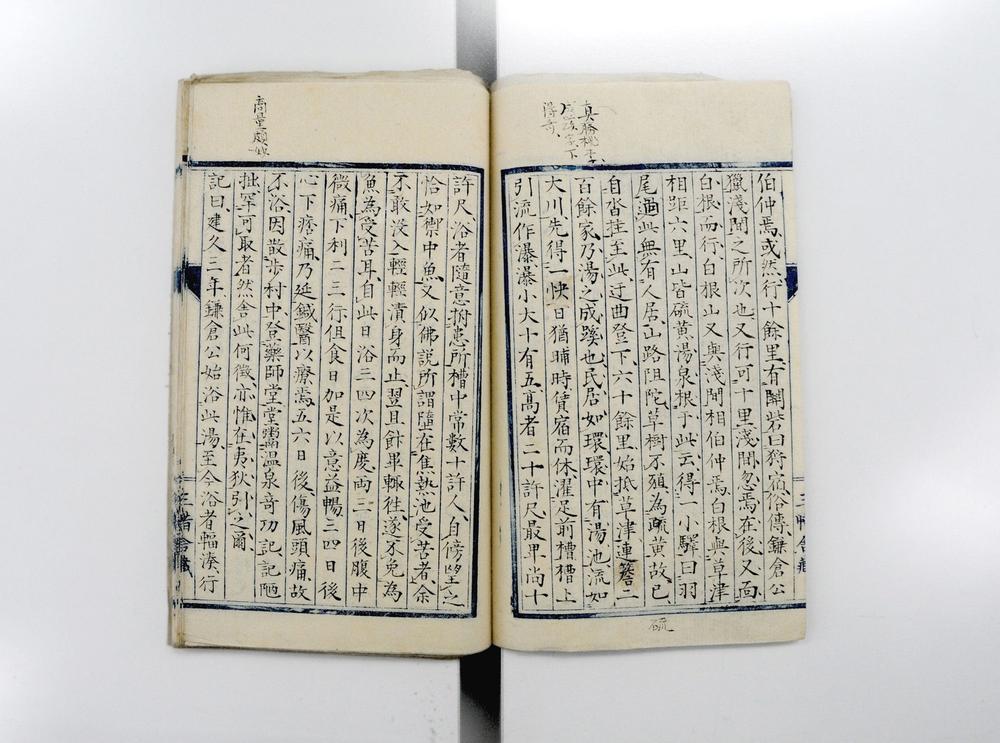 伯仲焉或然行十餘里有關砦曰狩宿俗傳鎌倉公
獵淺間之所次也又行可十里淺間忽焉在後又面
白根而行白根山又與淺間相伯仲焉白根與草津
相距六里山皆硫黃湯泉根于此云得一小驛曰羽
尾過此無有人居山路阻陀草樹不殖為疏黃故已
自沓挂至此迂曲登下六十餘里始抵草津連簷二
百餘家乃湯之成蹊也民居如環環中有湯池流如
大川先得一快日猶晡時賃宿而休濯足前槽槽上
引流作瀑瀑小大十有五高者二十許尺最卑尚十
許尺浴者隨意拊患所槽中常數十許人自傍望之
恰如禦中魚又似佛說所謂墮在焦熱池受苦者余
不敢沒入輕輕漬身而止翌且飰畢輙徃遂不免為
魚為受苦耳自此日浴三四次為度両三日後腹中
微痛下利二三行但食日加是以意益暢三四日後
心下痞痛乃延鍼醫以療焉五六日後傷風頭痛故
不浴因散步村中登藥師堂堂鬻溫泉奇功記記陋
拙罕可取者然舍此何徵亦惟在夷狄引之爾
記曰建久三年鎌倉公始浴此湯至今浴者輻湊行
硫